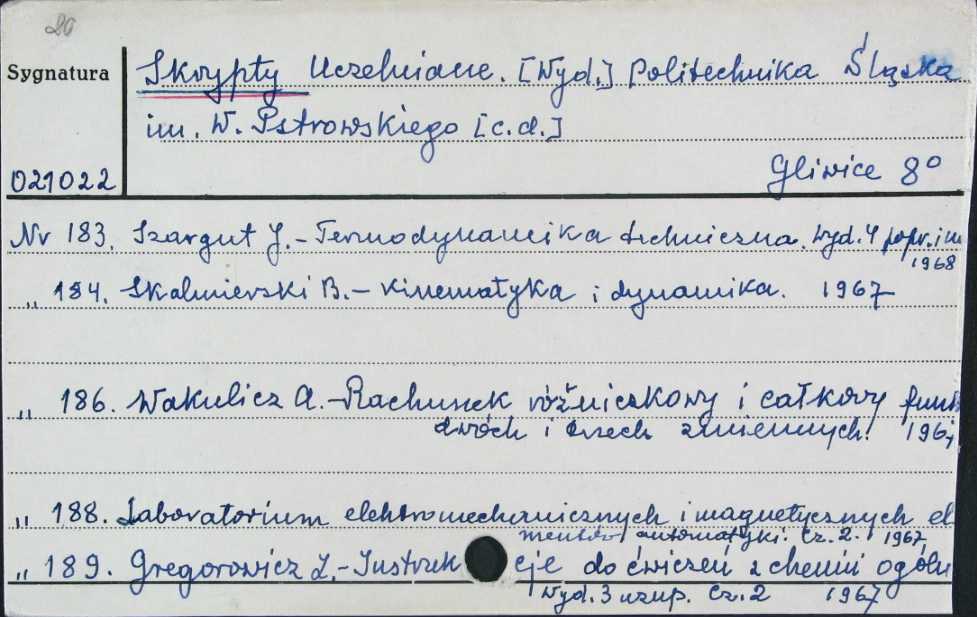 20
Sygnatura
Skrypty Uczelniane. [Wyd.] Politechnika Śląska
im. W. Pstrowskiego [c.d.]
021022
Gliwice 8°
Nr 183. Szargut J. - Termodynamika techniczna. Wyd. 4 popr. i
1968
„ 184. Skalmierski B. - Kinematyka i dynamika. 1967
„ 186. Wakulicz A. - Rachunek różniczkowy i całkowy funk
dwóch i trzech zmiennych. 1967
„ 188. Laboratorium elektromechanicznych i magnetycznych el
mentów automatyki. Cz. 2. 1967
„ 189. Gregorowicz Z. - Instrukcje do ćwiczeń z chemii ogóln
Wyd. 3 uzup. Cz. 2 1967